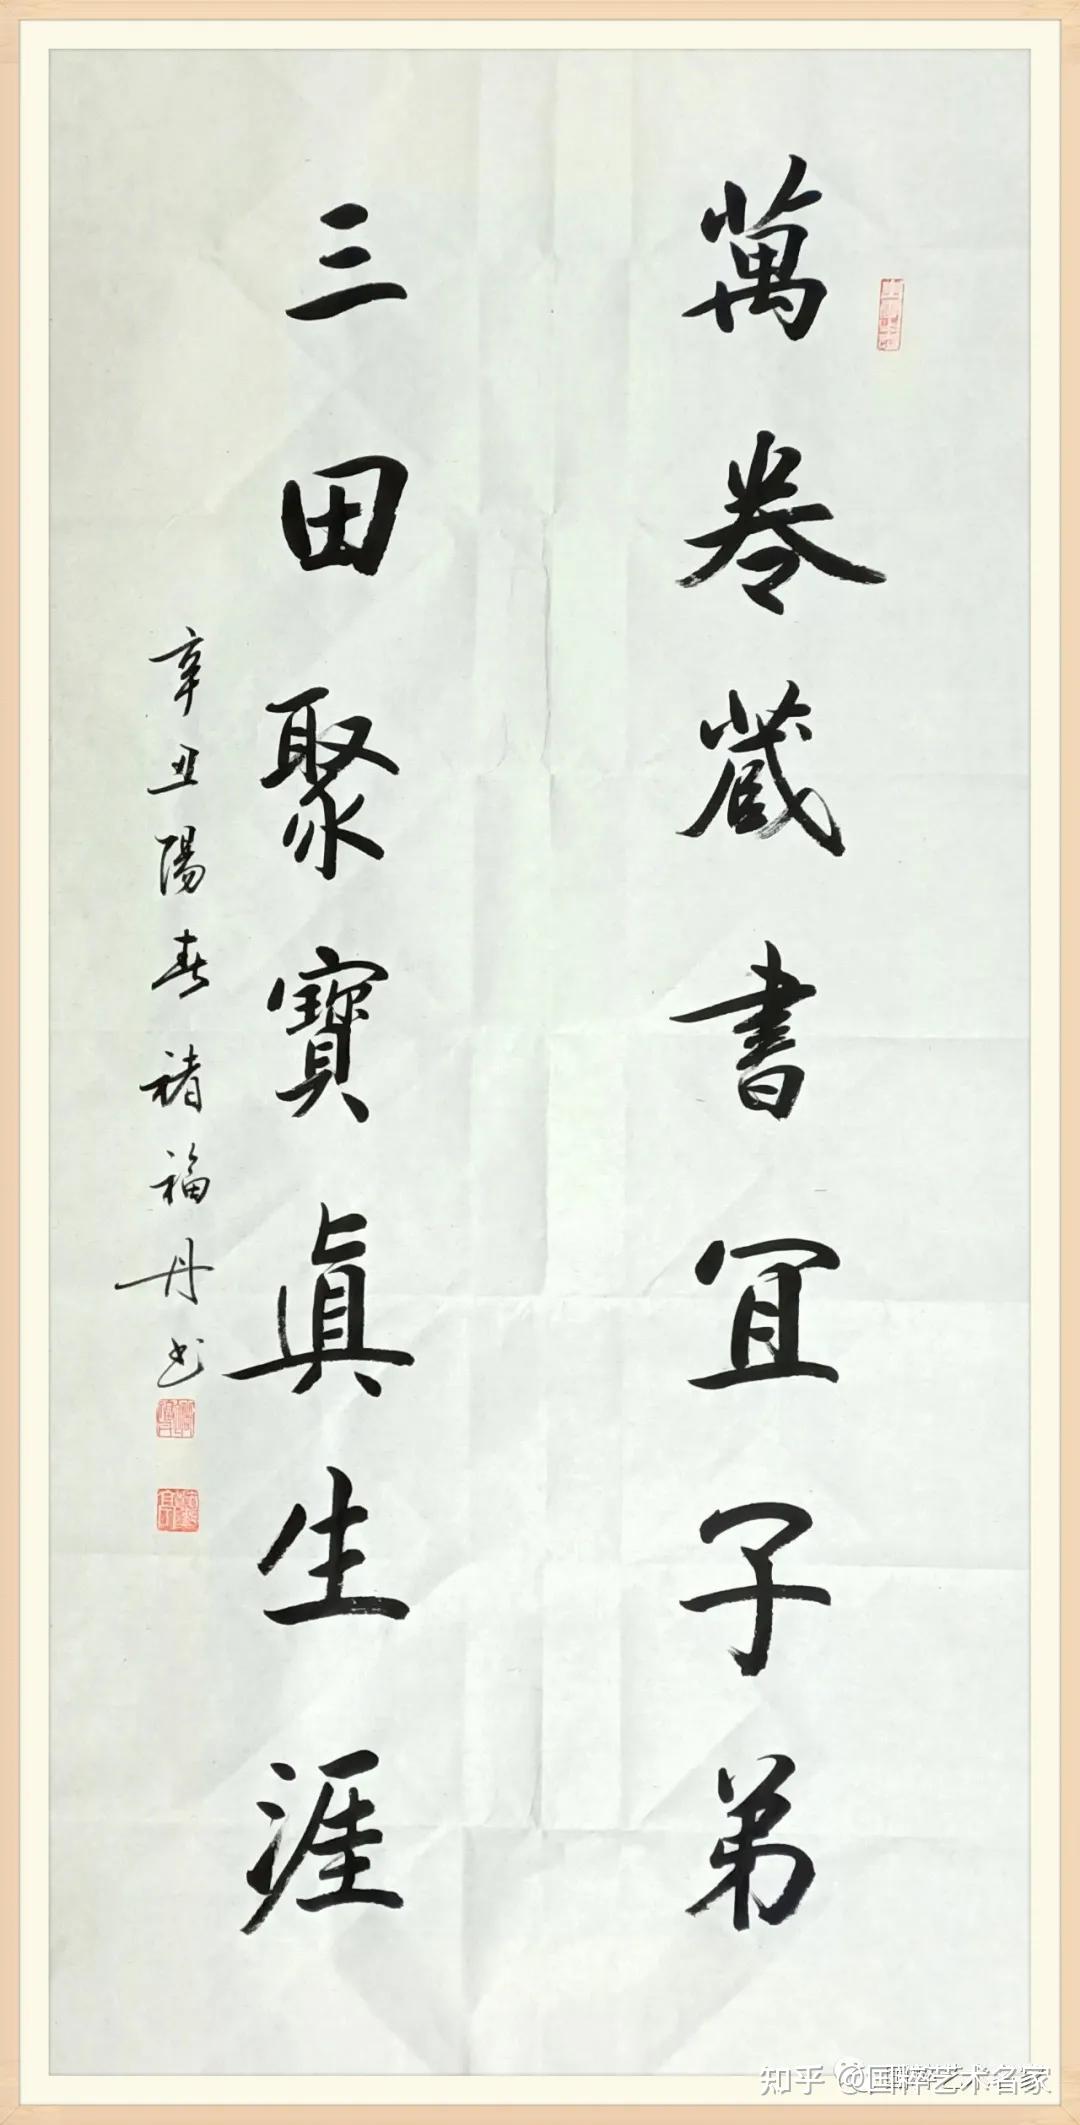 萬卷藏書宜子弟
三田聚寶眞生涯
辛丑陽春褚福丹书
知乎 @国粹艺术名家